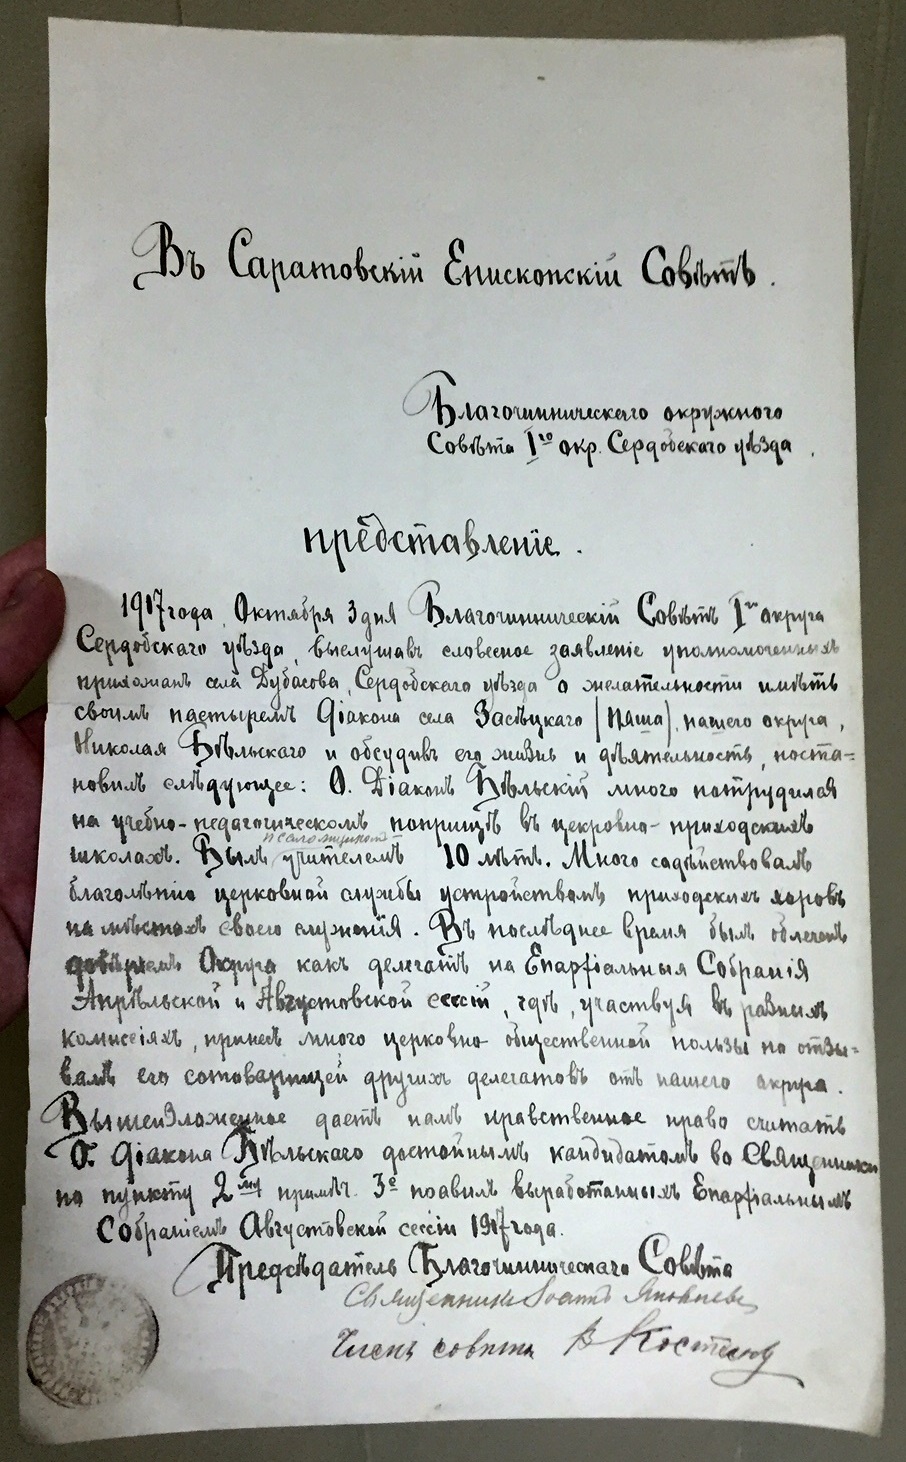 Въ Саратовскій Епископскій Совѣтъ.
Благочинническаго окружного
Совѣта Iго окр. Сердобскаго уѣзда.
представленіе.
1917 года Октября 3 дня Благочинническій Совѣтъ Iго округа
Сердобскаго уѣзда, выслушавъ словесное заявленіе уполномоченныхъ
прихожанъ села Дубасова, Сердобскаго уѣзда о желательности имѣть
своимъ пастыремъ діакона села Засѣцкаго (Паша), нашего округа,
Николая Бѣльскаго и обсудивъ его жизнь и дѣятельность, поста=
новилъ слѣдующее: О. Діаконъ Бѣльскій много потрудился
на учебно-педагогическомъ поприщѣ въ цекровно-приходскихъ
псаломщикомъ
школахъ. Былъ учителемъ 10 лѣтъ. Много содѣйствовалъ
благолѣпію церковной службы устройствомъ приходскихъ хоровъ
на мѣстахъ своего служенія. Въ послѣднее время былъ облеченъ
довѣріемъ Округа какъ делегатъ на Епархіальныя Собранія
Апрѣльской и Августовской сессій, гдѣ, участвуя въ разныхъ
комиссіяхъ, принесъ много церковно-общественной пользы по отзы=
вамъ его сотоварищей другихъ делегатовъ отъ нашего округа.
Вышеизложенное даетъ намъ нравственное право считать
О. діакона Бѣльскаго достойнымъ кандидатомъ во Священники
по пункту 2му примѣч. 3е правилъ выработанныхъ Епархіальнымъ
Собраніемъ Августовской сессіи 1917 года.
Предсѣдатель Благочинническаго Совѣта
Священникъ Іоаннъ
Членъ совѣта В.